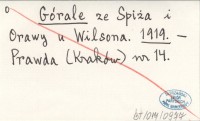 Górale ze Spiża i
Orawy u Wilsona. 1919. —
Prawda (Kraków) nr 14.